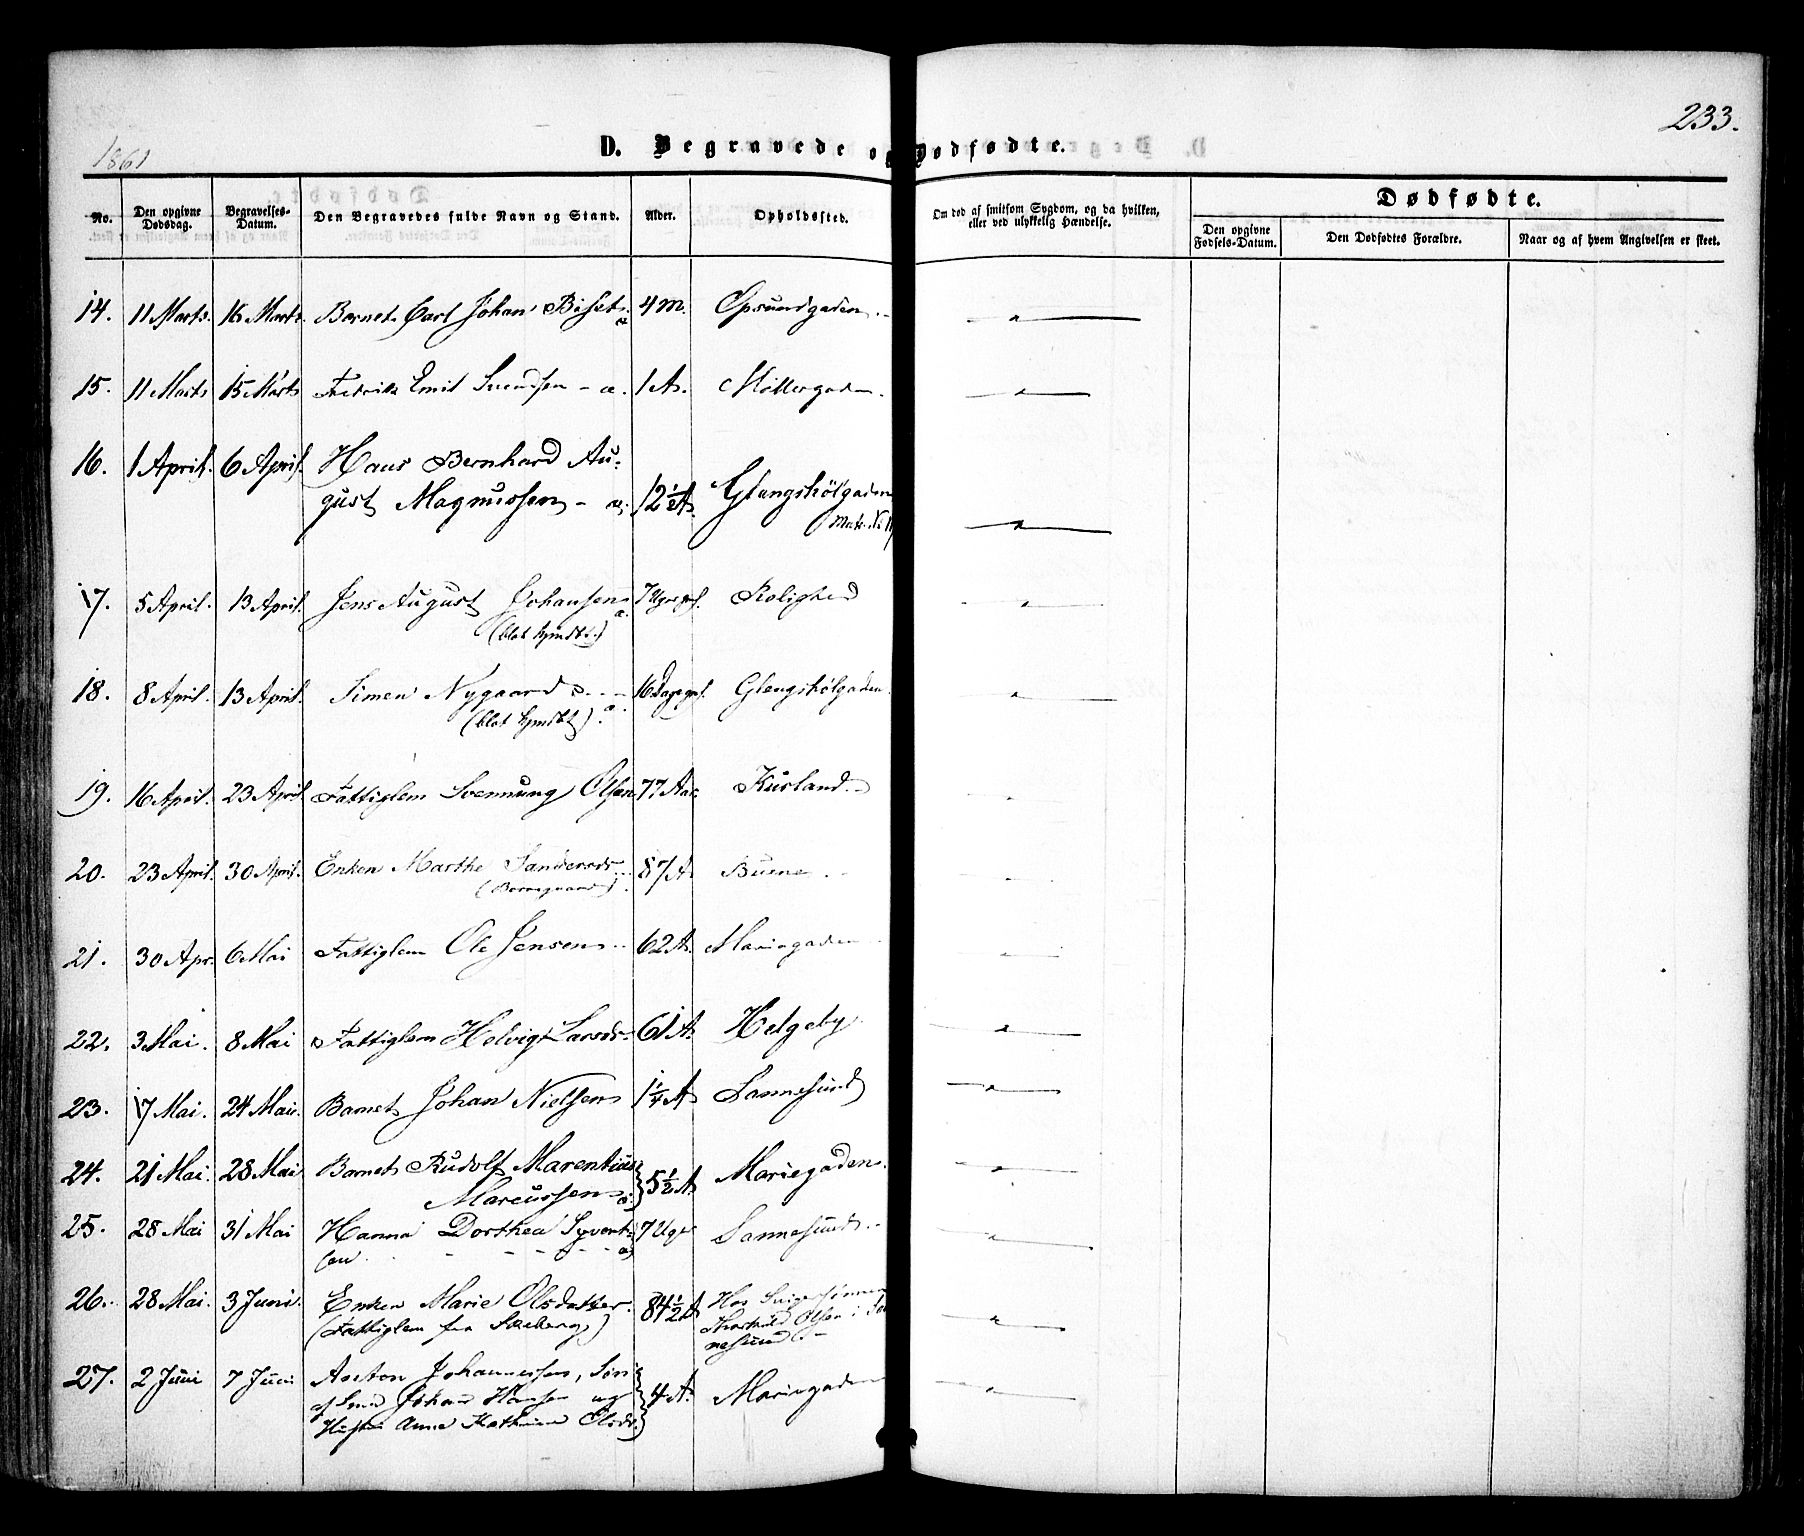 233.
1861
D. Begravede og Dødfødte.
No.
Den opgivne Dødsdag.
Begravelses-Datum.
Den Begravedes fulde Navn og Stand.
Alder.
Opholdssted.
Om død af smitsom Sygdom, og da hvilken, eller ved ulykkelig Hændelse.
Dødfødte.
Den opgivne Fødsels-Datum.
Den Dødfødtes Forældre.
Naar og af hvem Angivelsen er skeet.
14. 11 Marts. 16 Marts. Barnet Carl Johan 4 M. Opsundgaden.
15. 11 Marts 15 Marts Fredrik Emil Svendsen - a. 1 A. Møllergaden.
16. 1 April. 6 April. Hans Bernhard Au-
gust Magnussen - a. 12½ A. Glengshølgaden
17. 5 April. 13 April. Jens August Johansen a. 7 Uger Rolighed
(blot hjmdbt.)
18. 8 April. 13 April. Simen Nygaard a. 16 Dage Glengshølgaden.
(blot hjmdbt)
19. 16 April. 23 April. Fattiglem Svennung Olsen 77 Aar. Kurland
20. 23 April. 30 April. Enken Marthe Sandersdr. 87 A Buene.
21. 30 Apr. 6 Mai Fattiglem Ole Jensen 62 A. Mariegaden
22. 3 Mai. 8 Mai Fattiglem Helvig Larsdr. 61 A. Helgeby.
23. 17 Mai. 24 Mai. Barnet Johan Nielsen 1¼ A Sannesund
24. 21 Mai. 28 Mai Barnet Rudolf Marentius
Marcussen a. 5½ A. Mariegaden.
25. 28 Mai 31 Mai Hanna Dorthea Syvert-
sen a. 7 Uger Sannesund.
26. 28 Mai. 3 Juni. Enken Marie Olsdatter. 84½ A Hos Svigersønnen
(Fattiglem fra Skeberg) Olsen i San
nesund
27. 2 Juni 7 Juni Anton Johannessen, Søn
af Johan Hansen og 4 A. Mariegaden
Hustru Anne Kathrine Olsdr.